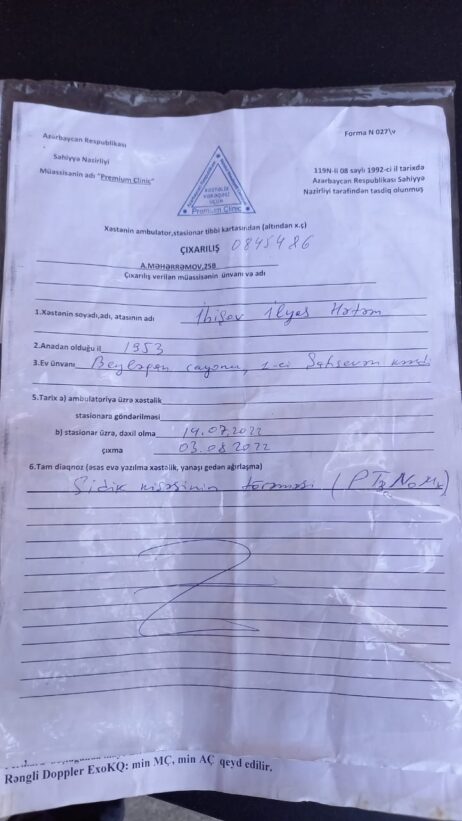 Azərbaycan Respublikası
Səhiyyə Nazirliyi
Müəssisənin adı "Premium Clinic"
Forma N 027\v
119N-li 08 saylı 1992-ci il tarixdə
Azərbaycan Respublikası Səhiyyə
Nazirliyi tərəfindən təsdiq olunmuş
XƏSTƏLİK
VƏRƏQƏSİ
ÜÇÜN
Premium Clinic
Xəstənin ambulator,stasionar tibbi kartasından (altından x.ç)
ÇIXARILIŞ 0845486
A.MƏHƏRRƏMOV,25B
Çıxarılış verilən müəssisənin ünvanı və adı
1.Xəstənin soyadı,adı, atasının adı İbişov İlyas Hətəm
2.Anadan olduğu il 1953
3.Ev ünvanı Beyləqan rayonu, 1-ci Şahsevən kəndi
5.Tarix a) ambulatoriya üzrə xəstəlik
stasionara göndərilməsi
b) stasionar üzrə, daxil olma 19.07.2022
çıxma 03.08.2022
6.Tam diaqnoz (əsas evə yazılma xəstəlik, yanaşı gedən ağırlaşma)
Sidik kisəsinin törəməsi (
Rəngli Doppler ExoKQ: min MÇ, min AÇ qeyd edilir.